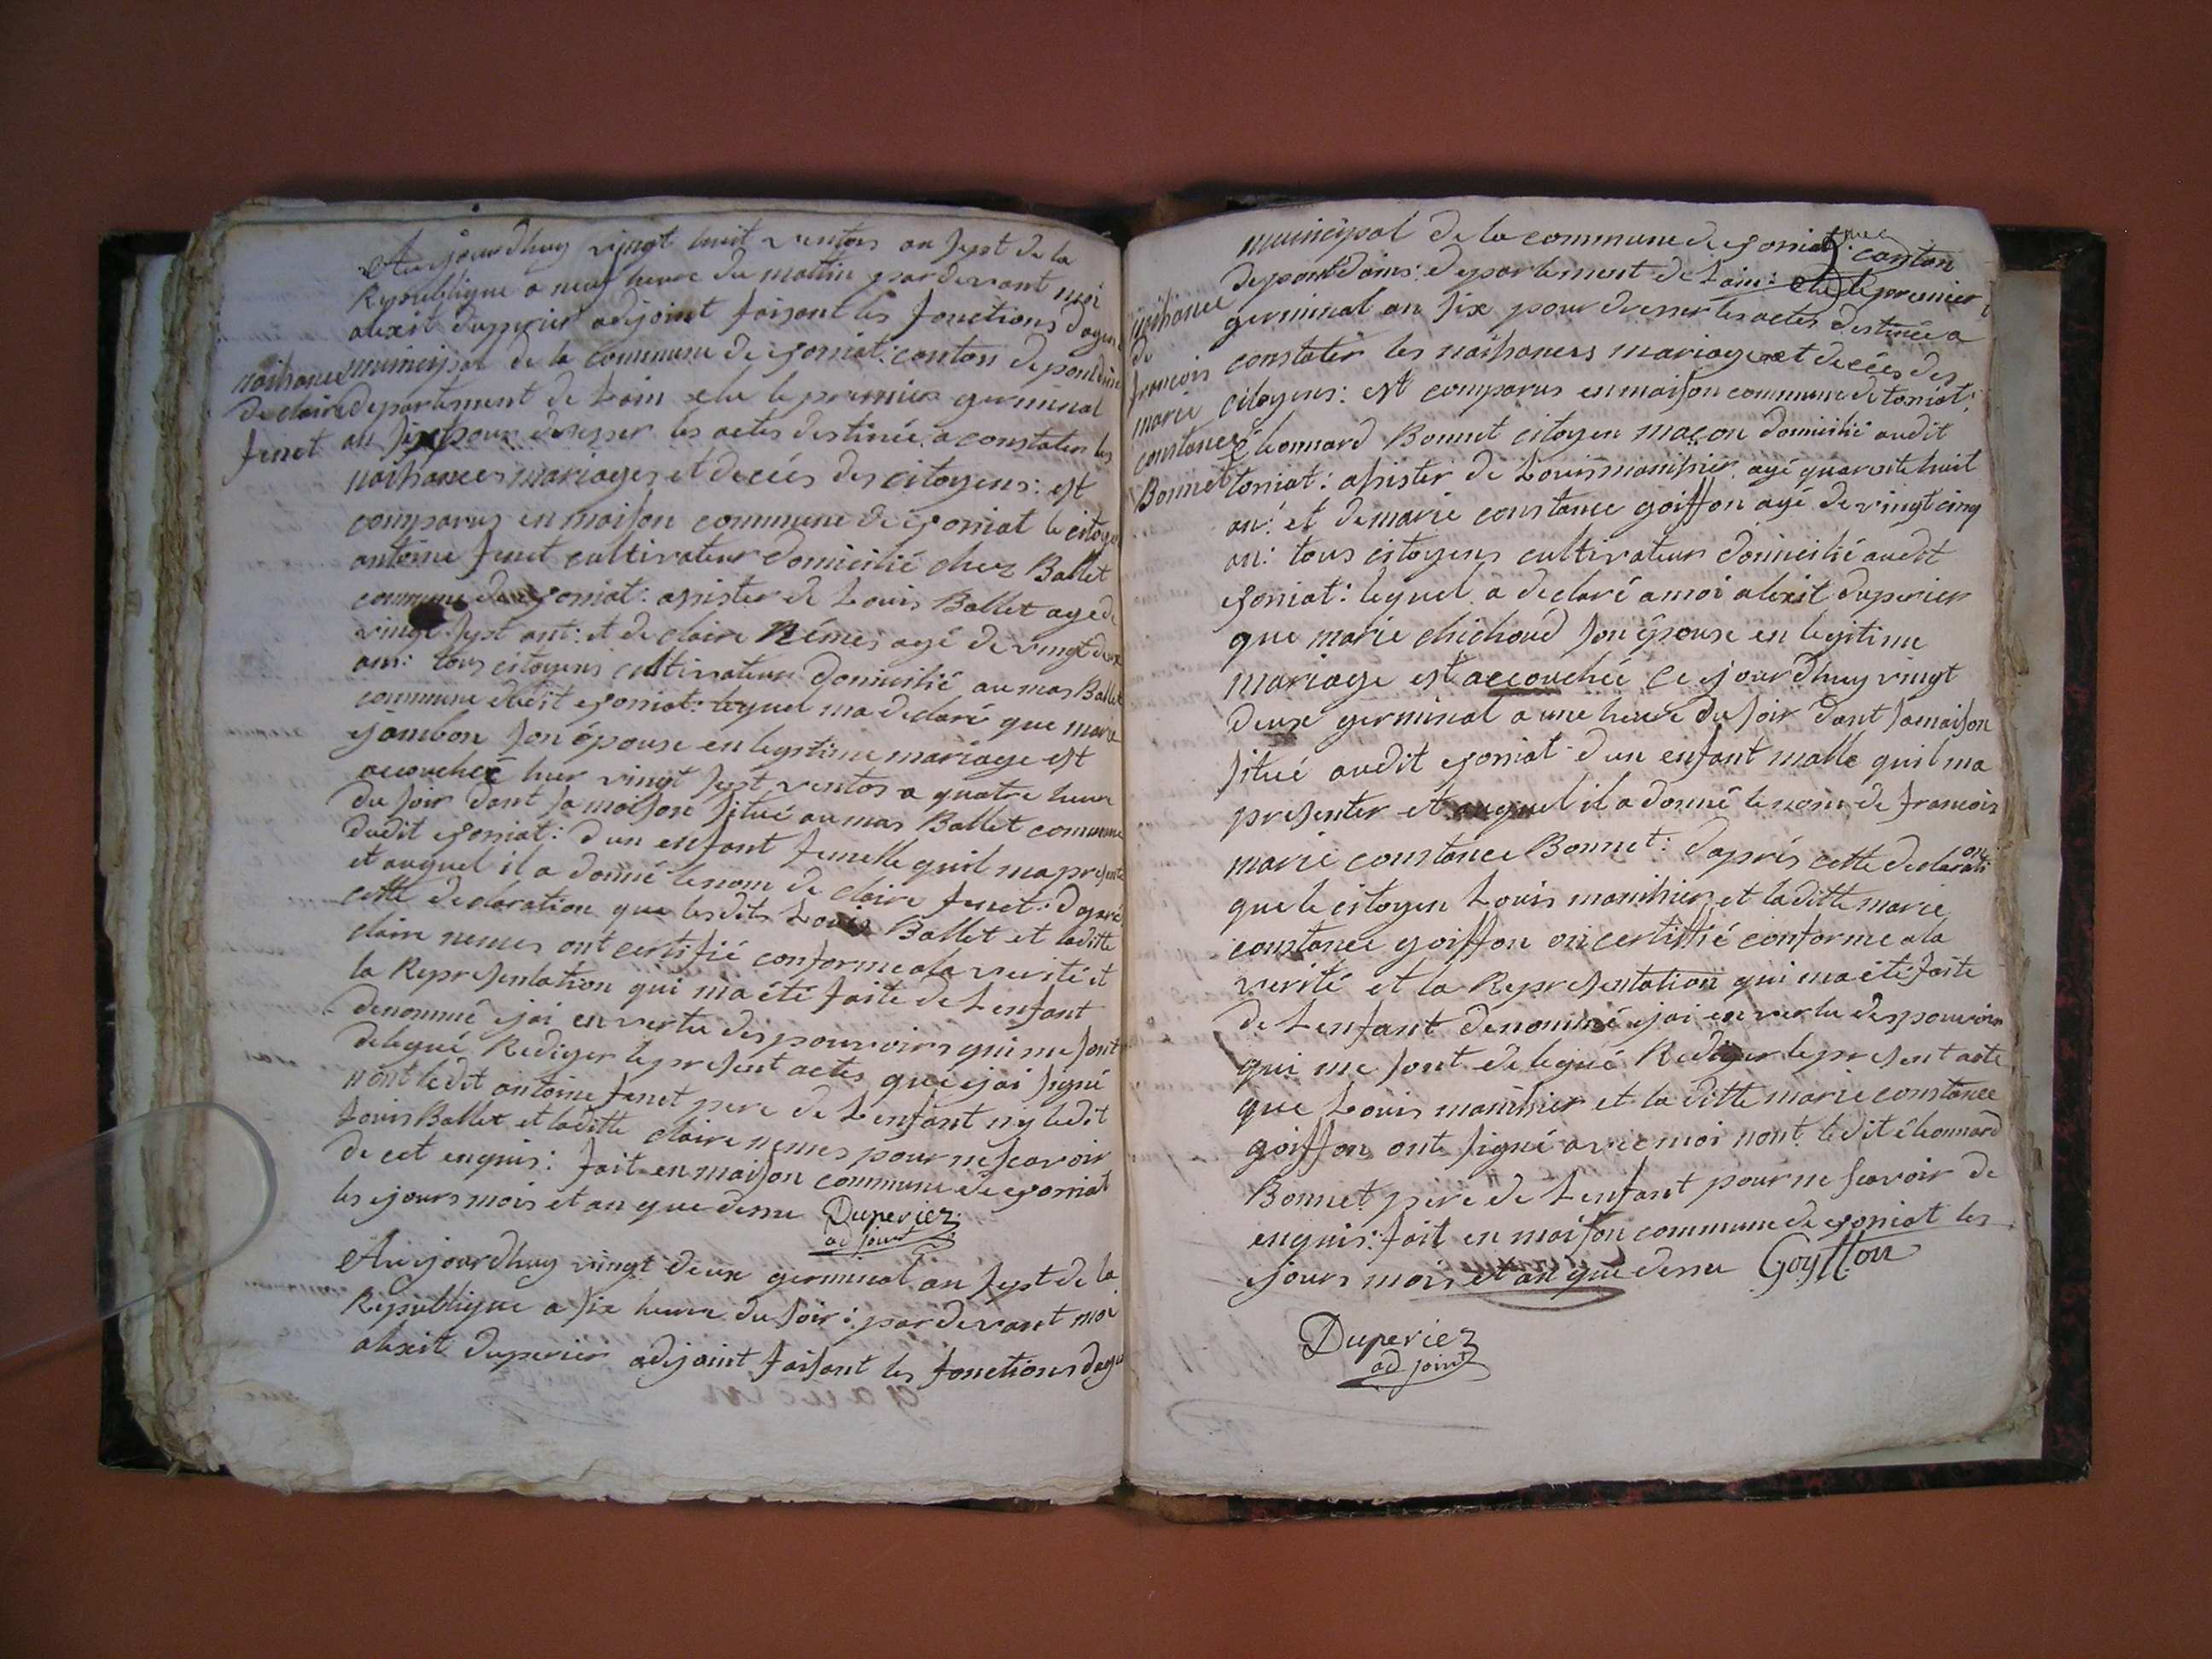 Aujourdhuy vingt huit ventos an sept de la
Republique a neuf heure du mattin par devant moi
alexit duperier adjoint faisant les fonctions dagent
municipal de la commune de joniat: canton de pontdins
departement de Lain elu le premier germinal
an six pour dresser les actes destinée a constater les
naissances mariages et decées des citoyens: est
comparus en maison commune de joniat le citoyen
antoine fenet cultivateur domicilié chez Ballet
commune de joniat: assister de Louis Ballet age de
vingt sept ant: et de claire Némes agé de vingt deux
ans: tous citoyens cultivateur domicilié au mas Ballet
commune dudit joniat: lequel ma declaré que marie
jambon son épouse en legitime mariage est
accouchéé hier vingt sept ventos a quatre heure
du soir dant sa maison situé au mas Ballet commune
dudit joniat: d'un enfant femelle quil ma presenté
et auquel il a donné le nom de claire fenet: d'après
cette declaration que lesdits Louis Ballet et laditte
claire nemes ont certifié conforme a la verité et
la Representation qui ma été faite de Lenfant
denommé jai en vertu des pouvoirs qui me sont
delegué Rediger le present actes que jai signé
nont ledit antoine fenet pere de Lenfant ny ledit
Louis Ballet et laditte claire nemes pour ne scavoir
de cet enquis: fait en maison commune de joniat
les jours mois et an que dessu Duperiez
adjoint
naissance
de claire
fenet
Aujourdhuy vingt deux germinal an sept de la
Republique a six heure du soir: par devant moi
alexit duperier adjoint faisant les fonctions dagent
municipal de la commune de joniat: canton
de pontdains: departement de Lain: elu le premier
germinal an six pour dresser les actes destinée a
constater les naissances mariages et decées des
citoyens: est comparus en maison commune de joniat:
éleonnard Bonnet citoyen maçon domicilié audit
joniat: assister de Louis manissier agé quarante huit
an: et de marie constance goiffon agé de vingt cinq
an: tous citoyens cultivateur domicilié audit
joniat: lequel a declaré a moi alexit duperier
que marie chichoud son épouse en legitime
mariage est accouchéé ce jourdhuy vingt
deux germinal a une heure du soir dant sa maison
situé audit joniat d'un enfant malle quil ma
presenter et auquel il a donné le nom de francois
marie constance Bonnet: d'aprés cette declaration
que le citoyen Louis manissier et laditte marie
constance goiffon on certiffié conforme a la
verité et la Representation qui ma été faite
de Lenfant denommé jai en vertu des pouvoirs
qui me sont delegué Rediger le present acte
que Louis manissier et la ditte marie constance
goiffon ont signé avec moi nont ledit éleonnard
Bonnet pére de Lenfant pour ne scavoir de
enquis: fait en maison commune de joniat les
jours mois et an que dessu Goyffon
Duperiez
adjoint
naissance
de
francois
marie
constance
Bonnet